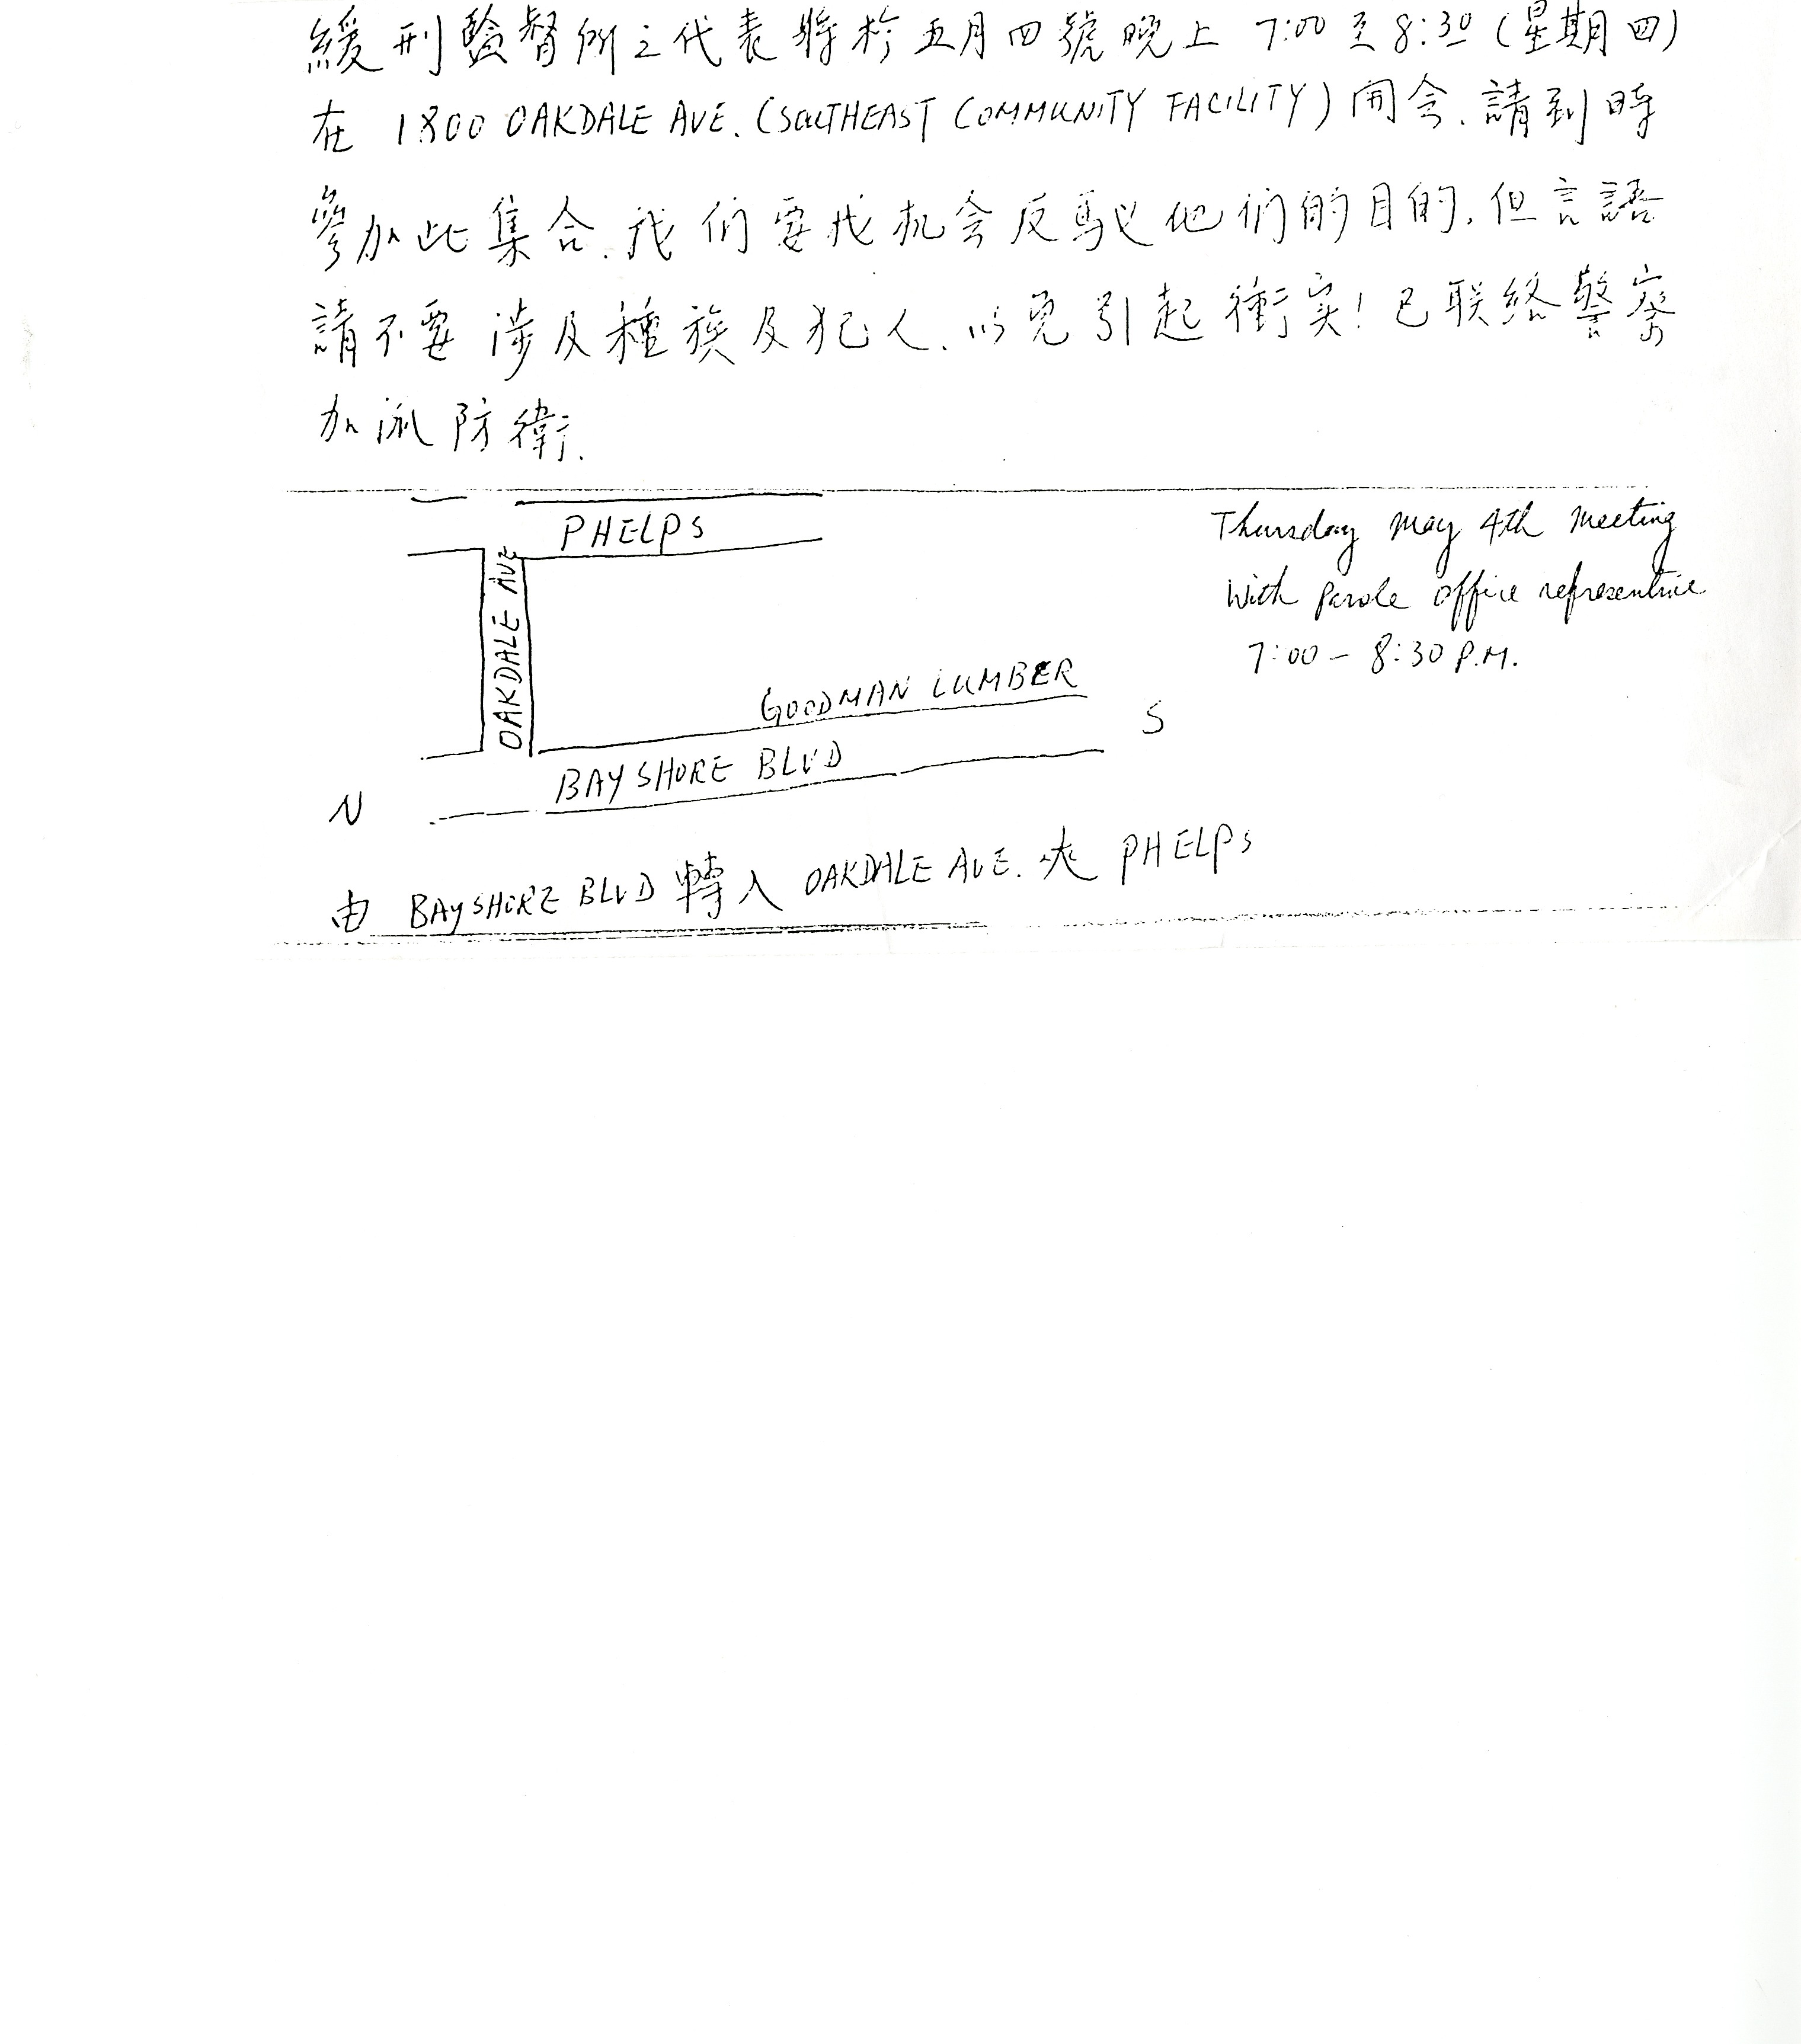 緩刑監督所之代表將於五月四號晚上 7:00 至 8:30 (星期四)
在 1800 OAKDALE AVE. (SOUTHEAST COMMUNITY FACILITY) 開会. 請到時
參加此集合. 我们要找机会反駁他们的目的. 但言語
請不要涉及種族及犯人. 以免引起衝突! 已联络警察
加派防衛.
PHELPS
OAKDALE AVE
GOODMAN LUMBER
BAYSHORE BLVD
N
S
Thursday May 4th Meeting
With parole office representive
7:00 - 8:30 P.M.
由 BAYSHORE BLVD 轉入 OAKDALE AVE. 夾 PHELPS